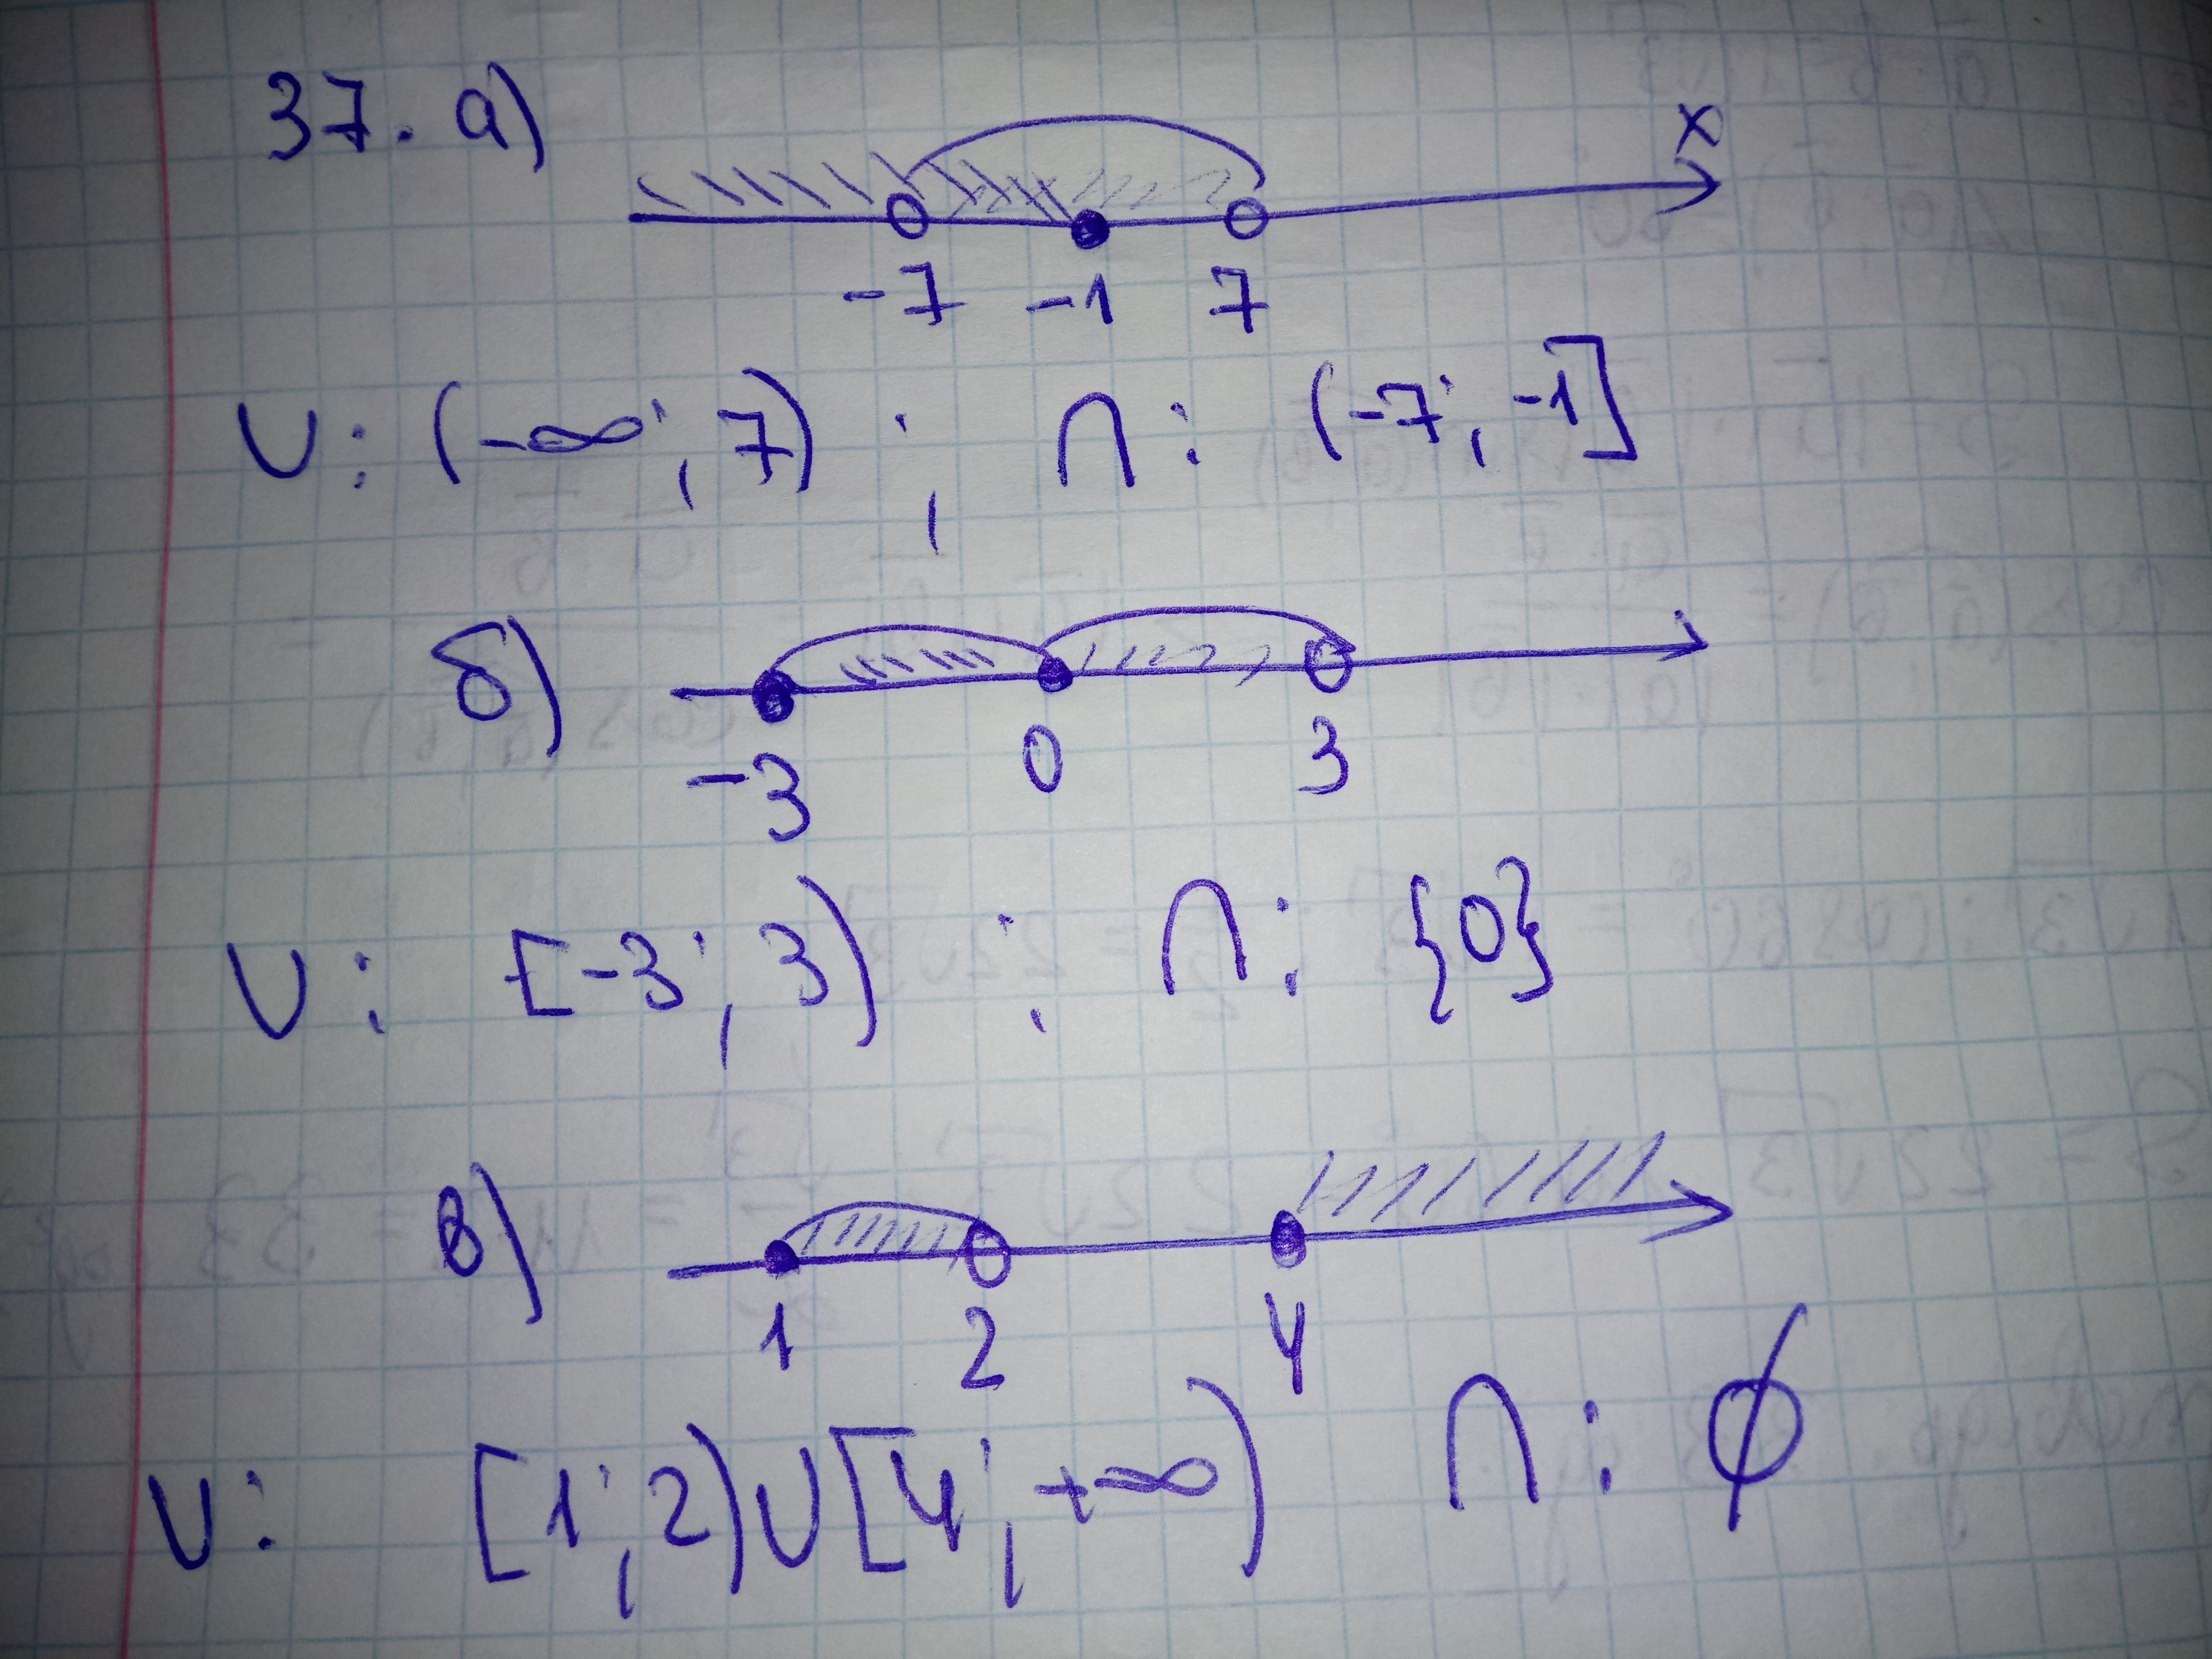 37. а)
x
-7 -1 7
∪: (-∞; 7) ; ∩: (-7; -1]
б)
-3 0 3
∪: [-3; 3) ; ∩: {0}
в)
1 2 4
∪: [1; 2)∪[4; +∞) ∩: ∅